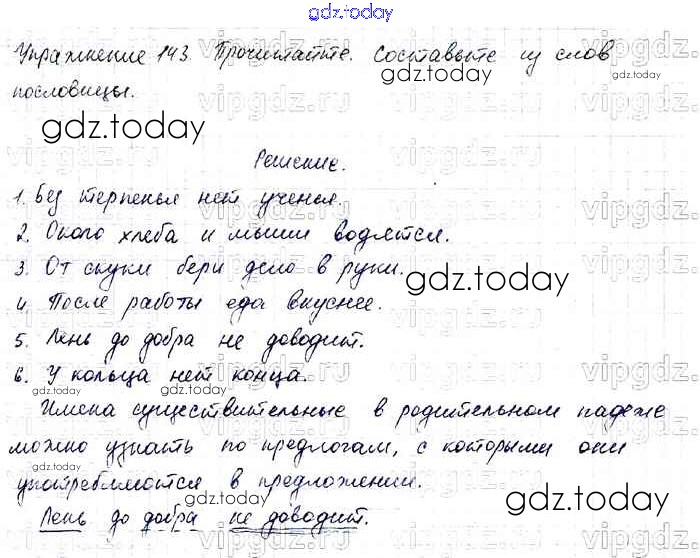 gdz.today
Упражнение 143. Прочитайте. Составьте из слов
пословицы.
gdz.today
gdz.today
Решение.
1. Без терпенья нет ученья.
2. Около хлеба и мыши водятся.
3. От скуки бери дело в руки.
gdz.today
4. После работы еда вкуснее.
5. Лень до добра не доводит.
6. У кольца нет конца.
gdz.today
gdz.today
Имена существительные в родительном падеже
можно узнать по предлогам, с которыми они
gdz.today
употребляются в предложении.
gdz.today
gdz.today
Лень до добра не доводит.
vipgdz.ru